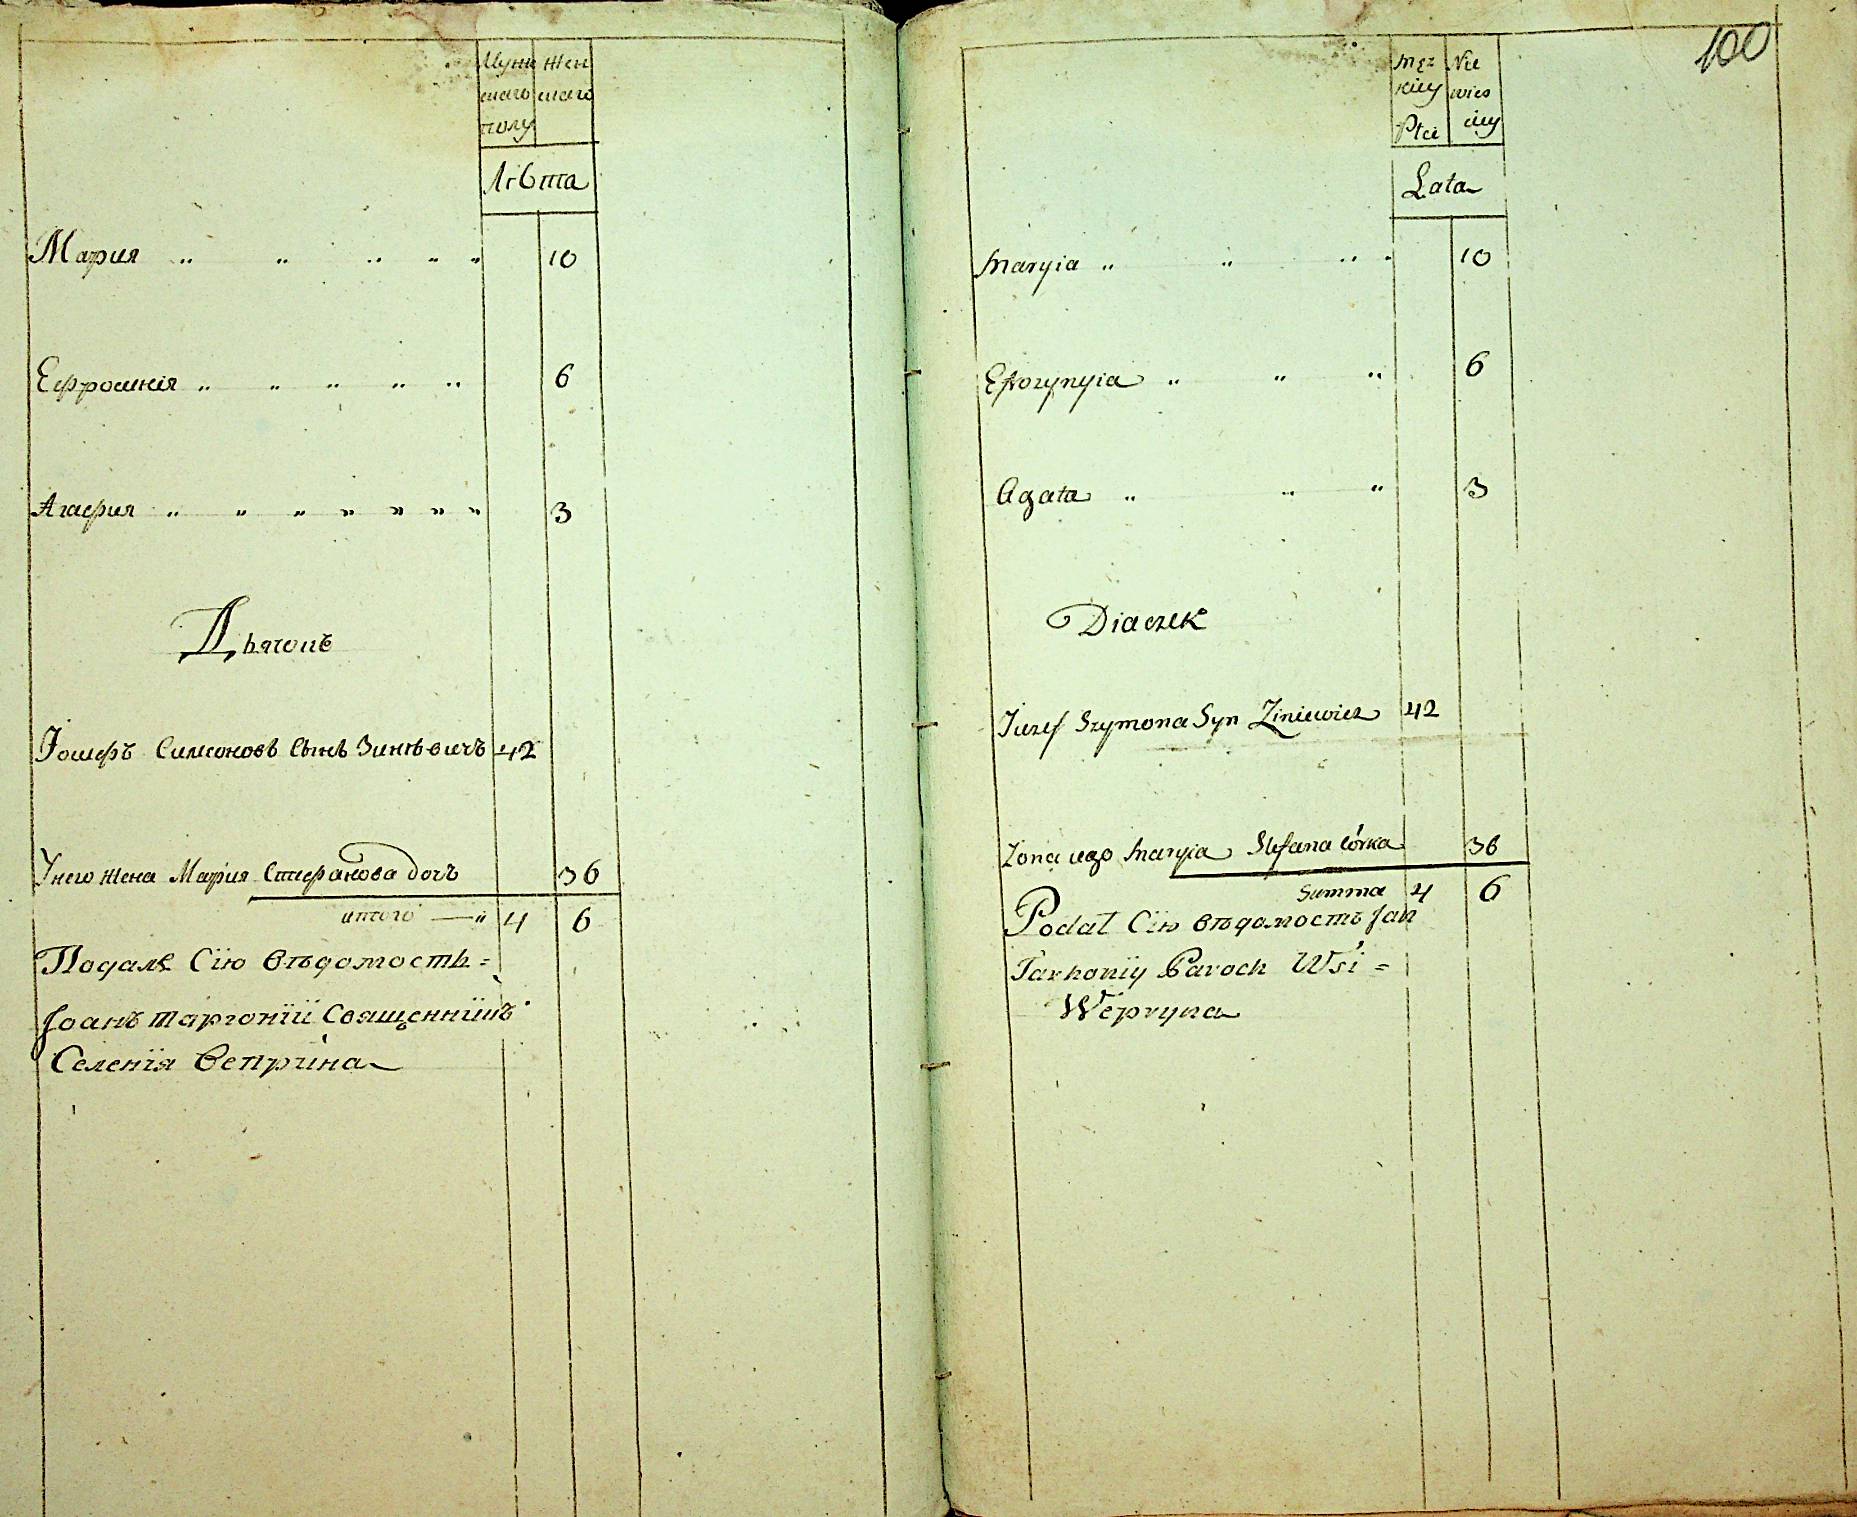 Мужескаго полу
Женскаго
Лѣта
Мария " " " " " 10
Ефросинія " " " " " 6
Агафия " " " " " " " 3
Дьячокъ
Іосифъ Симоновъ Сынъ Зинкевичъ 42
Унего жена Марія Стефанова дочь 36
итого — " 4 6
Подалъ Сїю вѣдомость =
Іоанъ Таргонїй Священникъ
Селенїя Веприна
100
Męzkiey Płci
Niewiesciey
Lata
Maryia " " " " 10
Efrozynyia " " " 6
Agata " " " 3
Diaczek
Juzef Szymona Syn Ziniewicz 42
Zona iego Maryia Stefana Córka 36
Summa 4 6
Podał Сїю вѣдомость Jan
Tarhoniy Paroch Wsi =
Wepryna